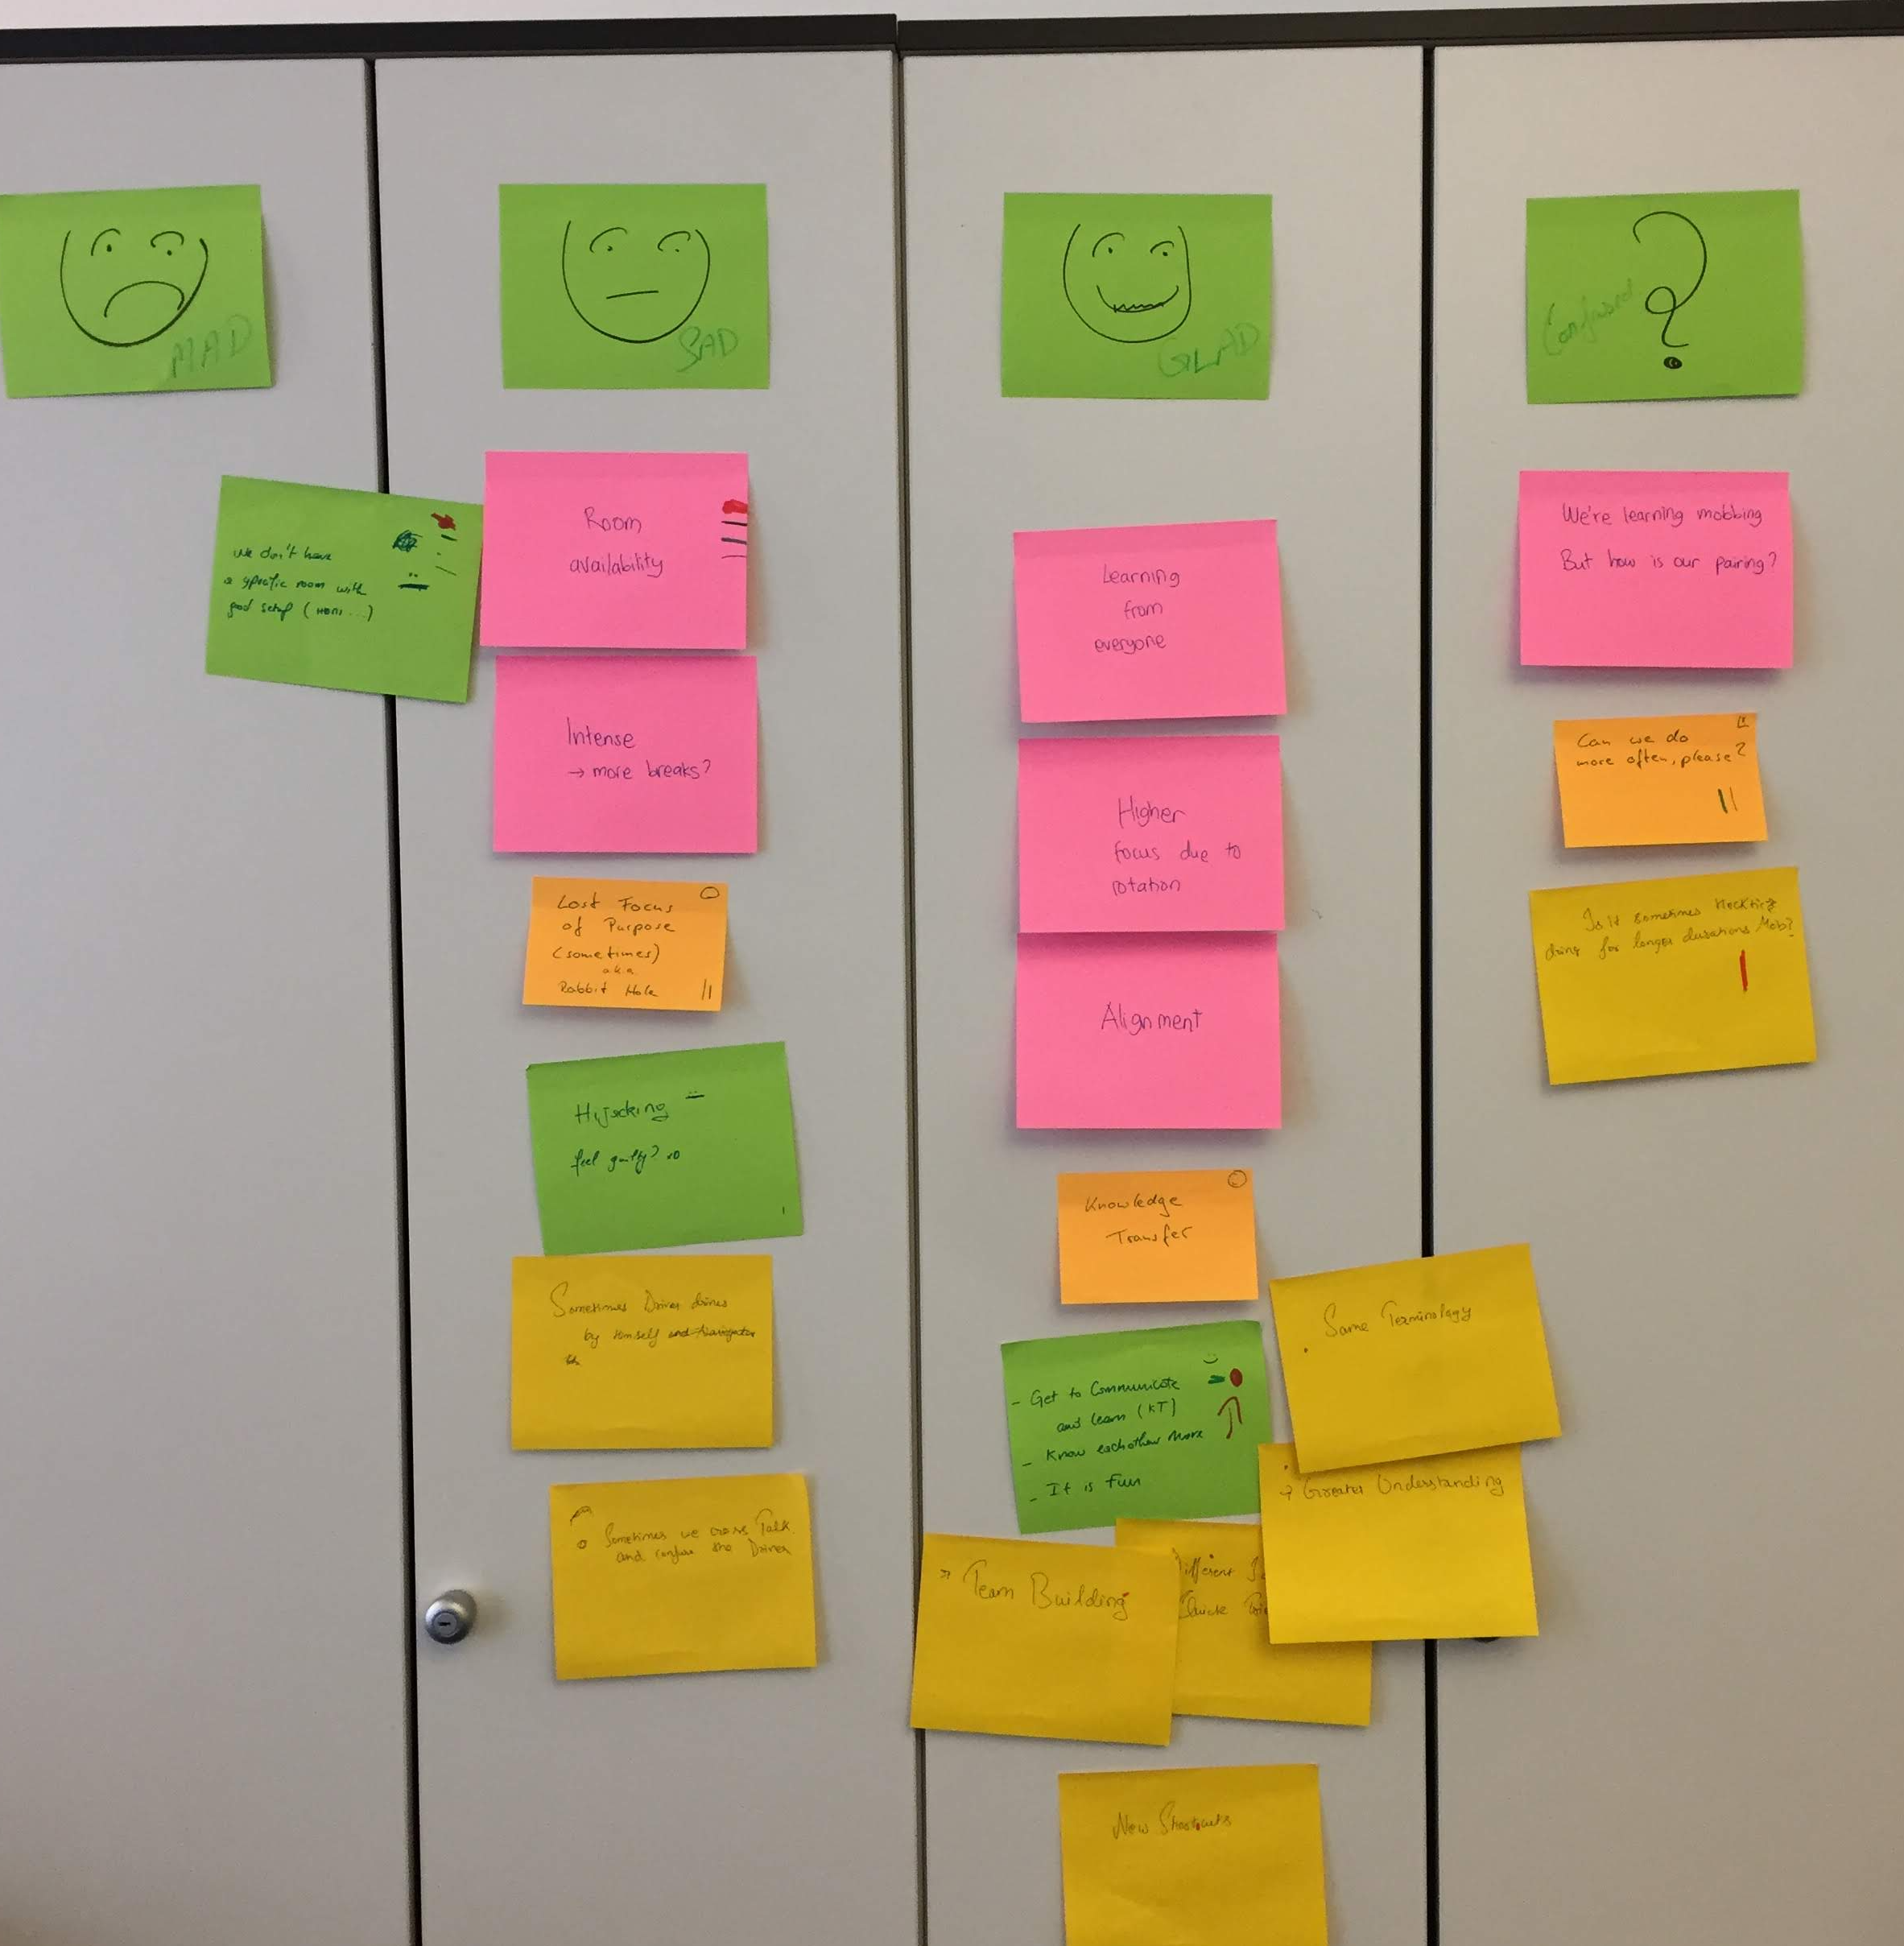 MAD
SAD
GLAD
Confused
?
we don't have
a specific room with
good setup (HDMI ...)
Room
availability
Intense
→ more breaks?
Lost Focus
of Purpose
(sometimes)
aka
Rabbit Hole
Hijacking
feel guilty?
Sometimes Driver drives
by himself and Navigator
Sometimes we cross Talk
and confuse the Driver
Learning
from
everyone
Higher
focus due to
rotation
Alignment
Knowledge
Transfer
- Get to Communicate
and learn (KT)
- Know eachother More
- It is Fun
Same Terminology
→ Greater Understanding
Team Building
Different
Quick
New Shortcuts
We're learning mobbing
But how is our pairing?
Can we do
more often, please?
Is it sometimes Hecktick
doing for longer durations Mob?